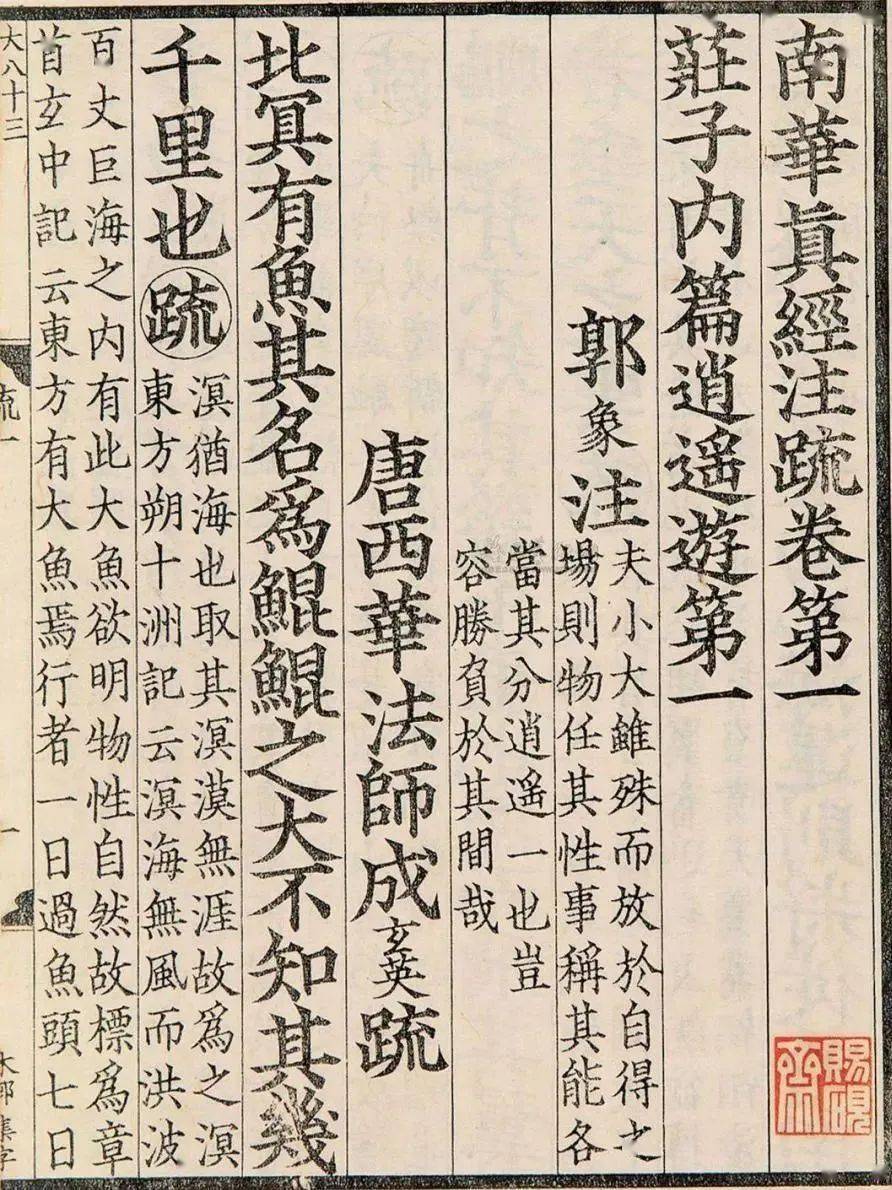 南華眞經注䟽卷第一
莊子内篇逍遥遊第一
郭象注
夫小大雖殊而放於自得之
場則物任其性事稱其能各
當其分逍遥一也豈
容勝負於其間哉
唐西華法師成玄英䟽
北冥有魚其名爲鯤鯤之大不知其幾
千里也䟽
溟猶海也取其溟漠無涯故爲之溟
東方朔十洲記云溟海無風而洪波
百丈巨海之内有此大魚欲明物性自然故標爲章
首玄中記云東方有大魚焉行者一日過魚頭七日
大八十三
一
賜硯
齋